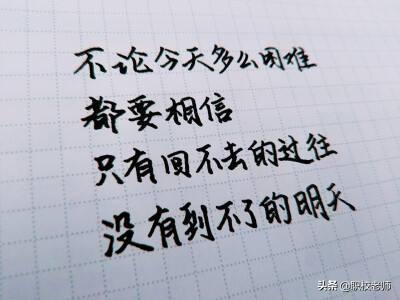 不论今天多么困难
都要相信
只有回不去的过往
没有到不了的明天
头条 @职校老师